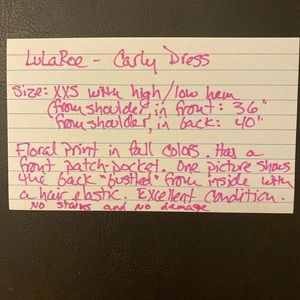 LuLaRoe - Carly Dress
Size: XXS with high/low hem
(from shoulder, in front: 36"
from shoulder, in back: 40"
Floral Print in fall colors. Has a
front patch-pocket. One picture shows
the back "bustled" from inside with
a hair elastic. Excellent Condition.
No stains and no damage